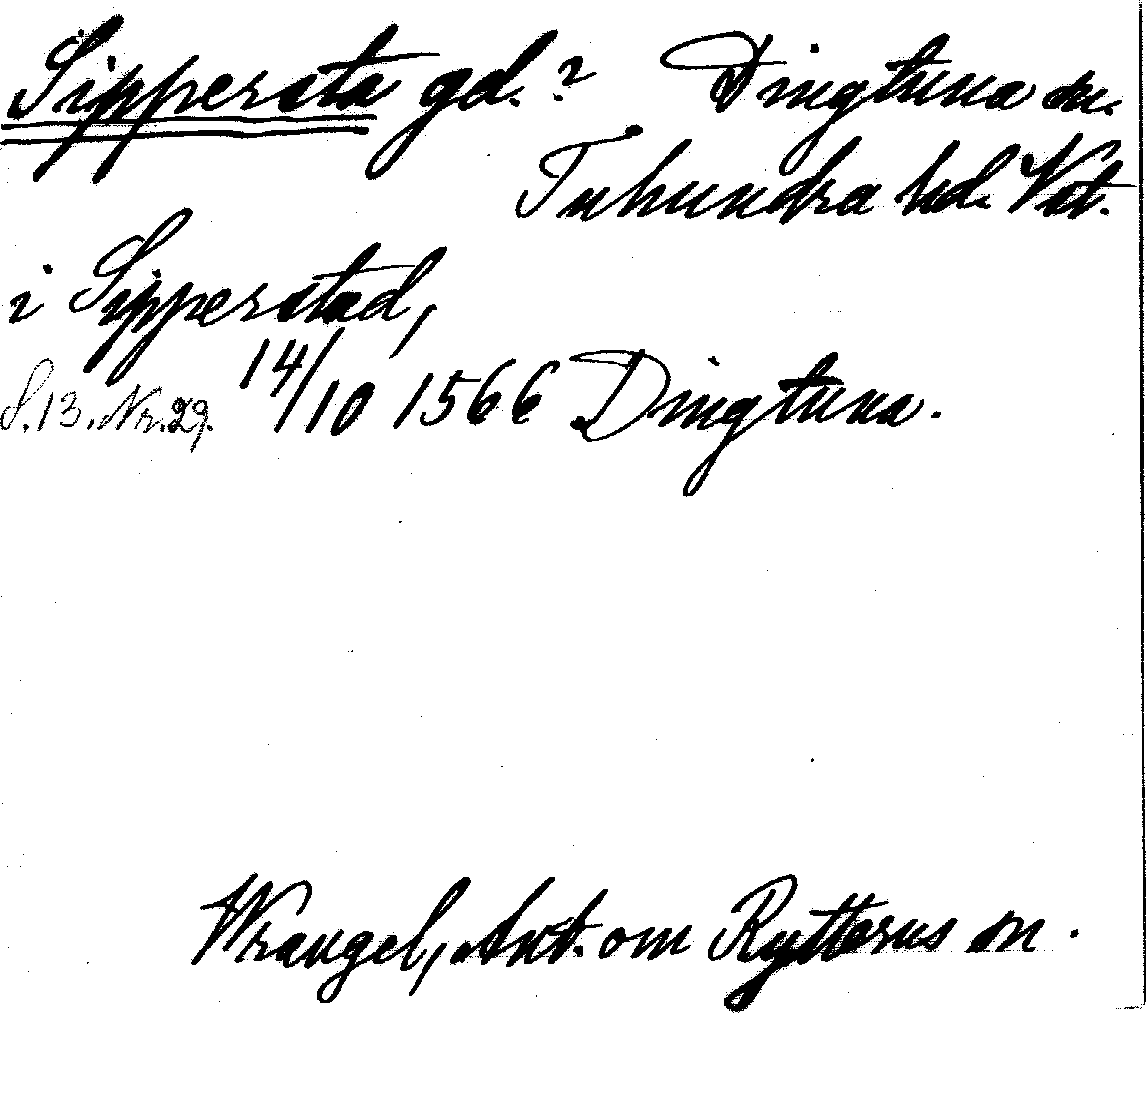 Sippersta gd.? Dingtuna sn.
Tuhundra hd. Vstm.
i Sipperstad,
S. 13. Nr. 29. 14/10 1566 Dingtuna.
Wrangel, Ant. om Rytterns sn.